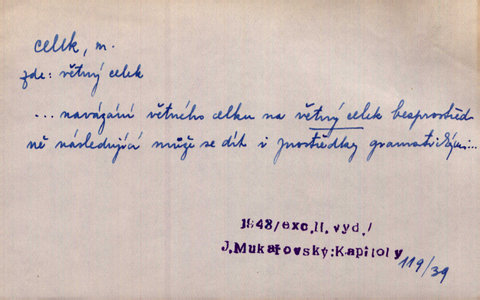 celek, m.
zde: větný celek
... navázání větného celku na větný celek besprostřed
ně následující může se dít i prostředky gramatickými...
1948/exc.II. vyd./
J.Mukařovský:Kapitoly
119/39